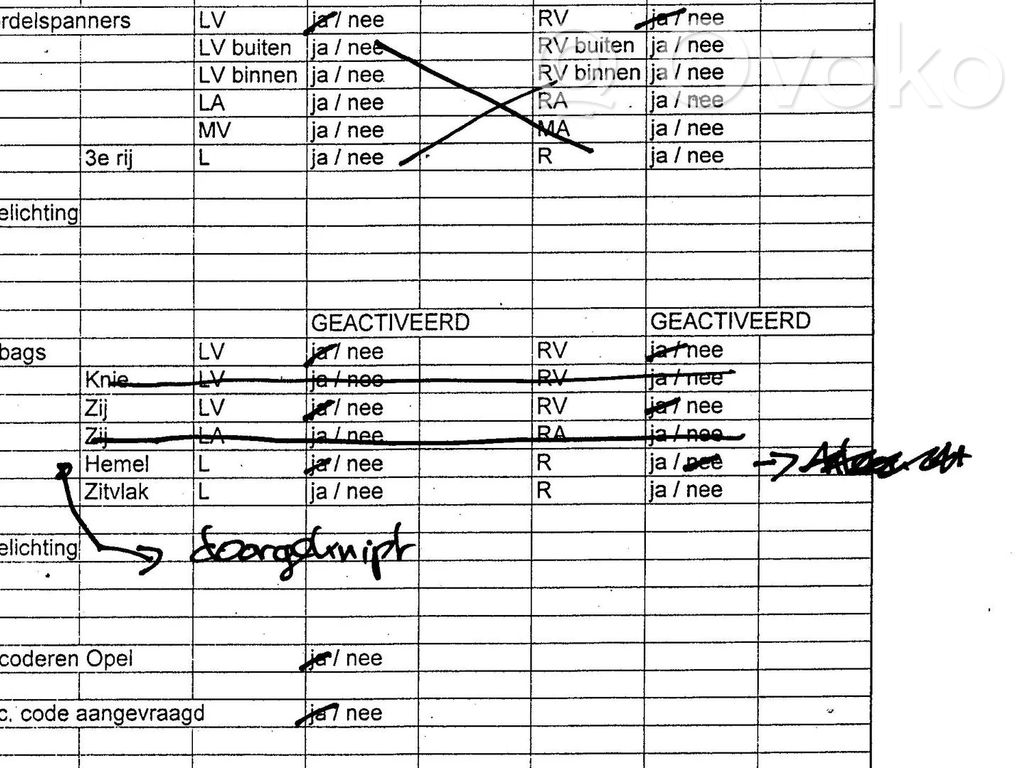 rdelspanners LV ja / nee RV ja / nee
LV buiten ja / nee RV buiten ja / nee
LV binnen ja / nee RV binnen ja / nee
LA ja / nee RA ja / nee
MV ja / nee MA ja / nee
3e rij L ja / nee R ja / nee
elichting
GEACTIVEERD GEACTIVEERD
bags LV ja / nee RV ja / nee
Knie LV ja / nee RV ja / nee
Zij LV ja / nee RV ja / nee
Zij LA ja / nee RA ja / nee
Hemel L ja / nee R ja / nee
Zitvlak L ja / nee R ja / nee
elichting doorgeknipt
coderen Opel ja / nee
c. code aangevraagd ja / nee
Ovoko